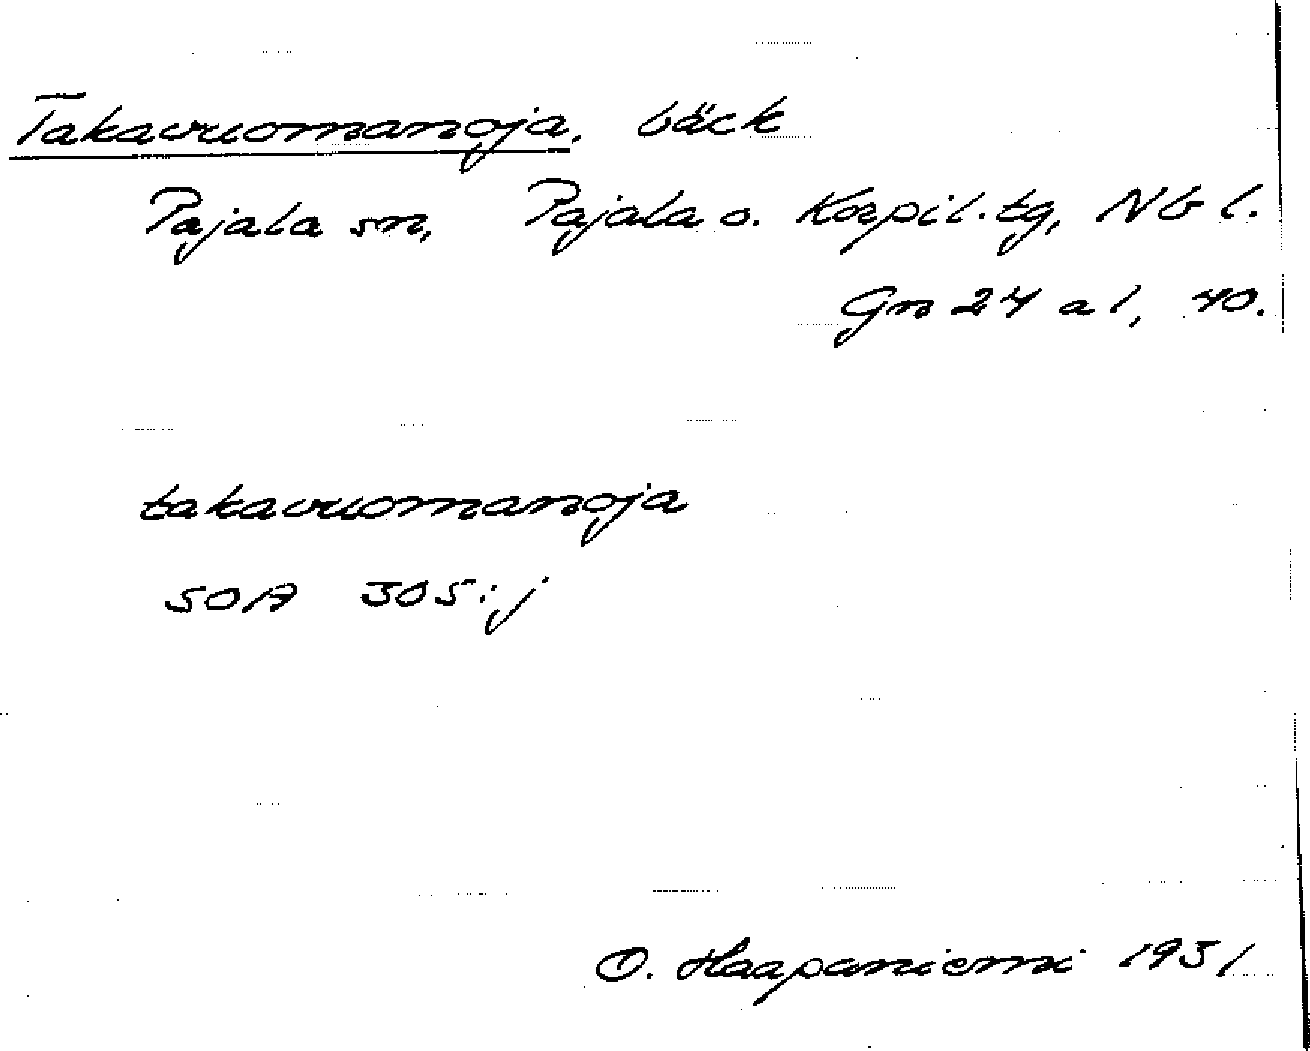 Takavuomanoja, bäck
Pajala sn, Pajala o. Korpil. tg, Nb l.
Gn 24 a 1, 40.
takavuomanoja
SOA 305:j
O. Haapaniemi 1931